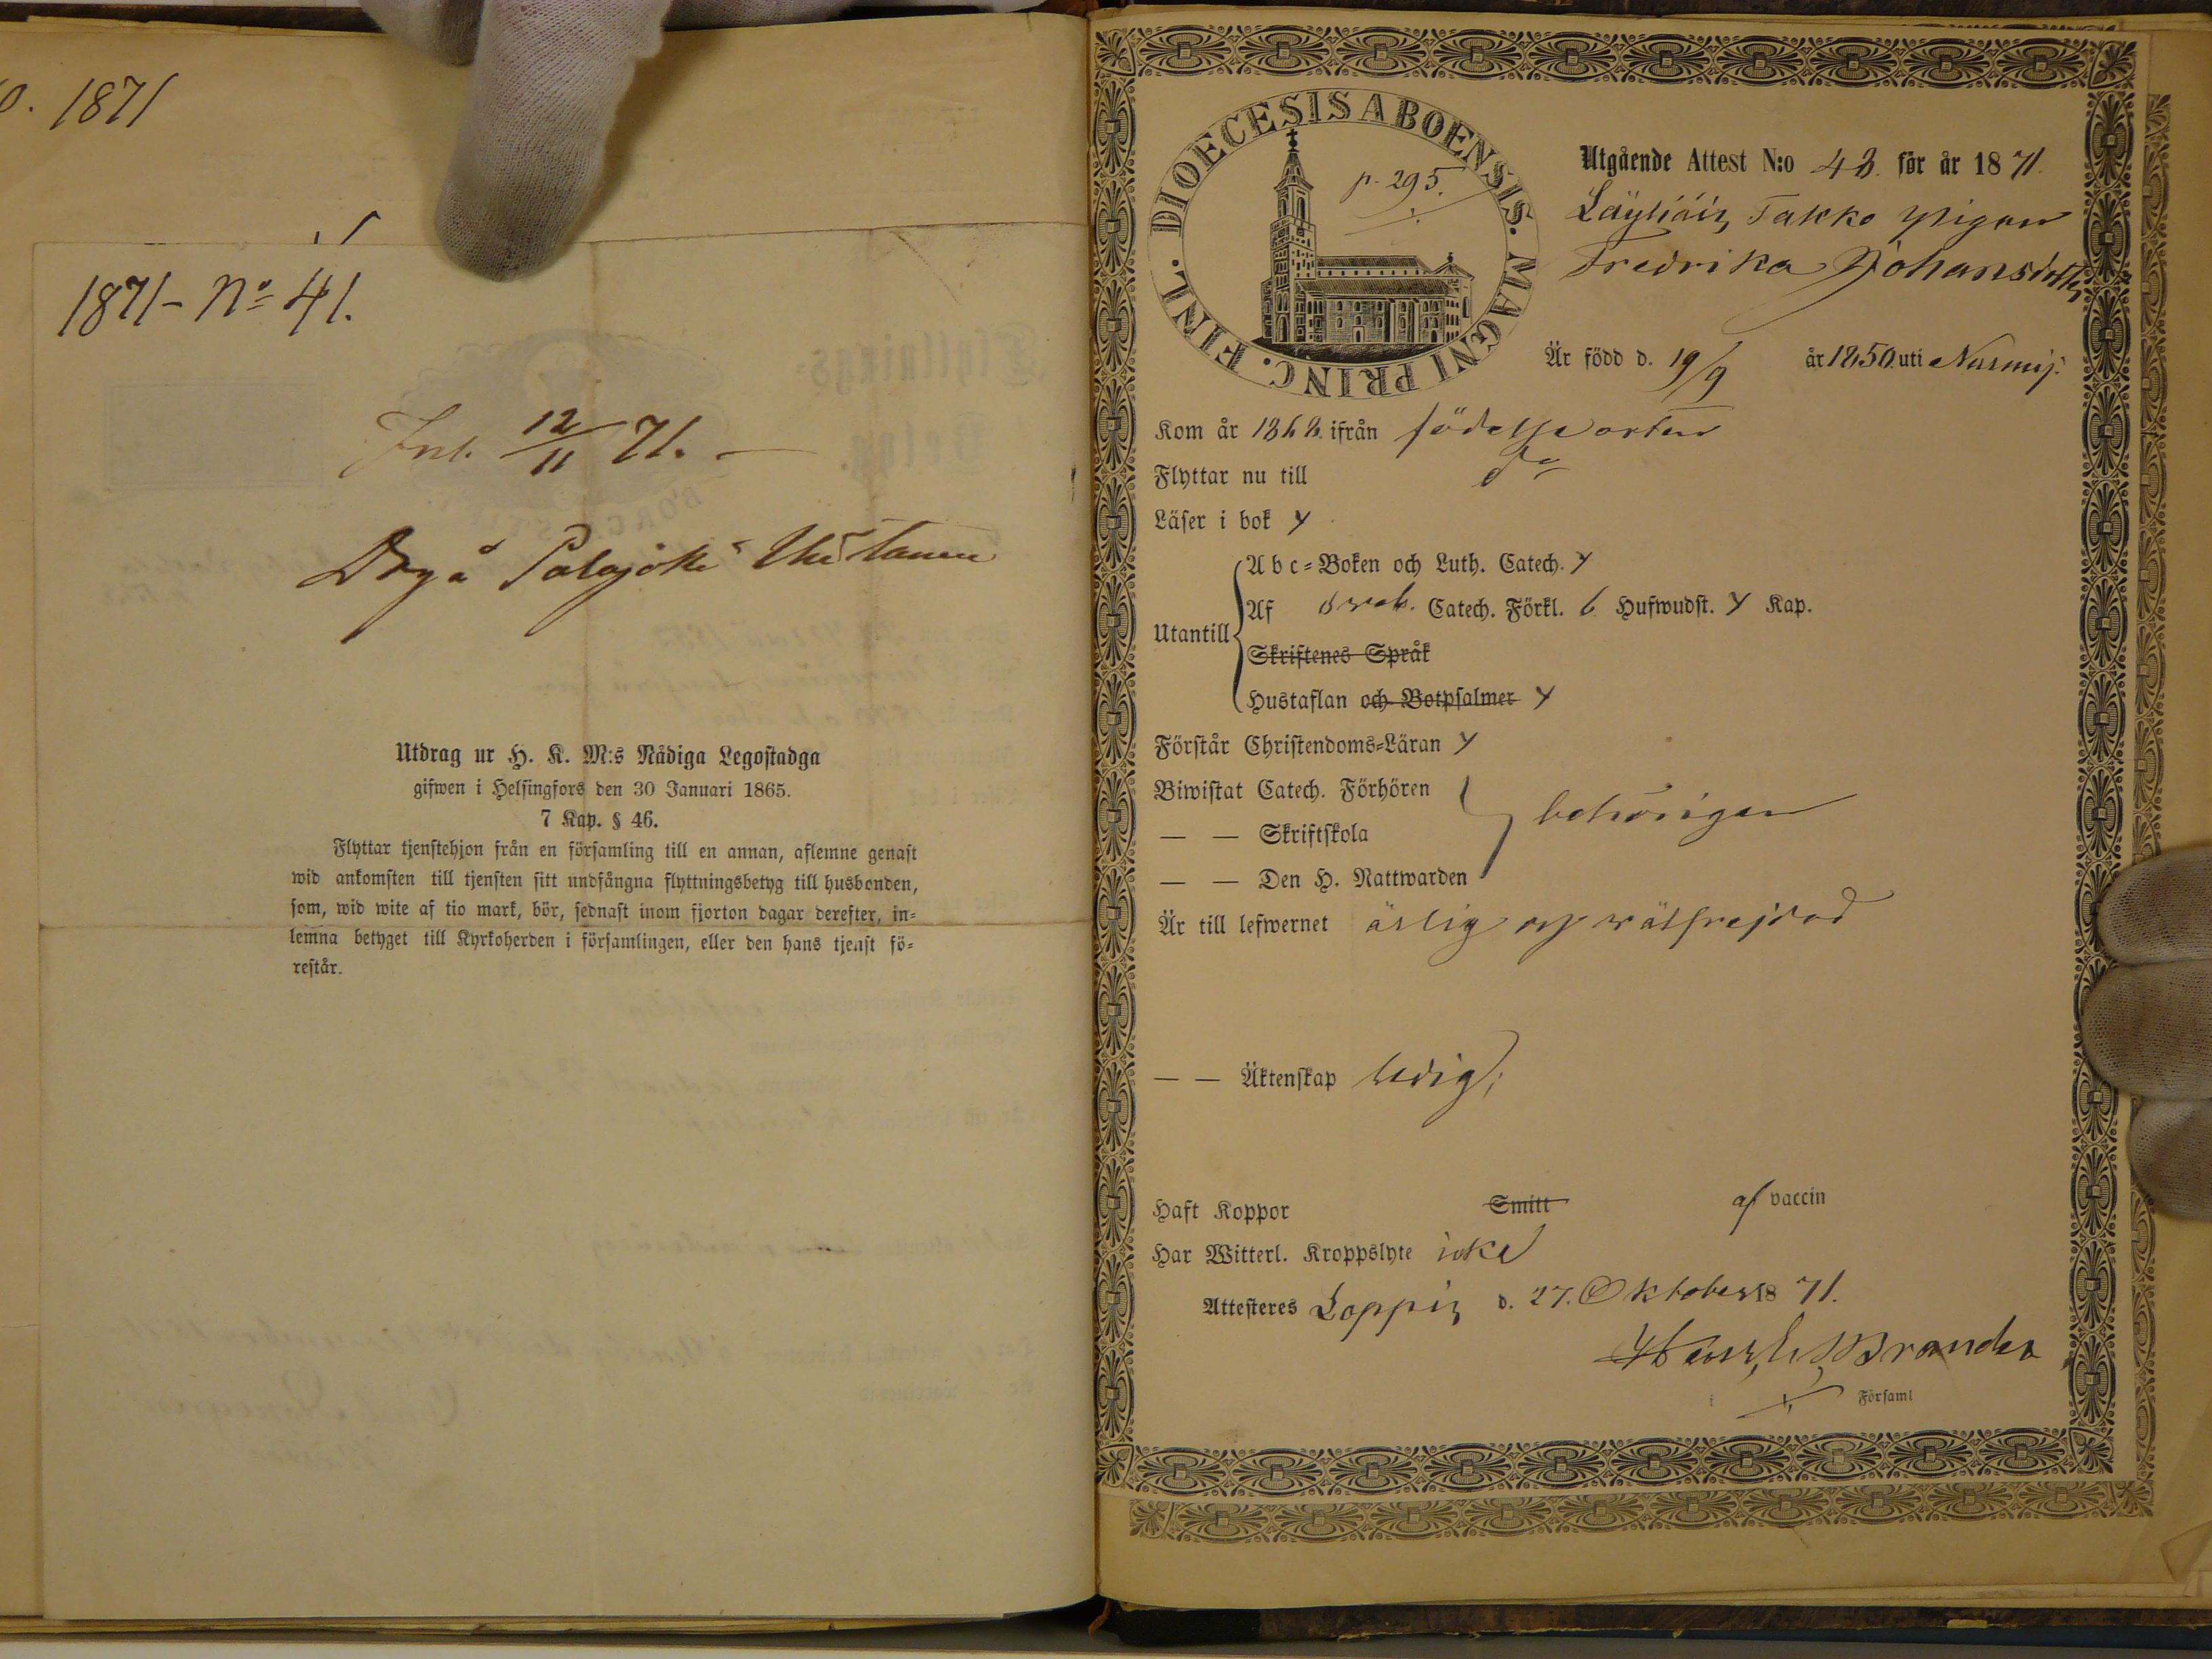 1871
1871 - No 41.
Inl. 12/11 71. —
Utdrag ur H. K. M:s Nådiga Legostadga
gifwen i Helsingfors den 30 Januari 1865.
7 Kap. § 46.
Flyttar tjenstehjon från en församling till en annan, aflemne genast
wid ankomsten till tjensten sitt undfångna flyttningsbetyg till husbonden,
som, wid wite af tio mark, bör, sednast inom fjorton dagar derefter, in-
lemna betyget till Kyrkoherden i församlingen, eller den hans tjenst fö-
restår.
FINL. DIOECESIS ABOENSIS. MAGNI PRINC.
p. 295.
Utgående Attest N:o 48. för år 1871.
Läyliäis Takko pigan
Fredrika Johansdotter
Är född d. 19/9 år 1850 uti Nurmij:
Kom år 1868. ifrån födelseorten
Flyttar nu till
Läser i bok
Abc-Boken och Luth. Catech.
Utantill
Af sveb. Catech. Förkl. 6 Hufwudst. Kap.
Skriftenes Språk
Hustaflan och Botpsalmer
Förstår Christendoms-Läran
Biwistat Catech. Förhören
— — Skriftskola
behörigen
— — Den H. Nattwarden
Är till lefwernet ärlig och wälfrejdad
— — Äktenskap ledig;
Haft Koppor Smitt af vaccin
Har Witterl. Kroppslyte icke
Attesteres Loppis d. 27. Oktober 1871.
Brander
i Församl